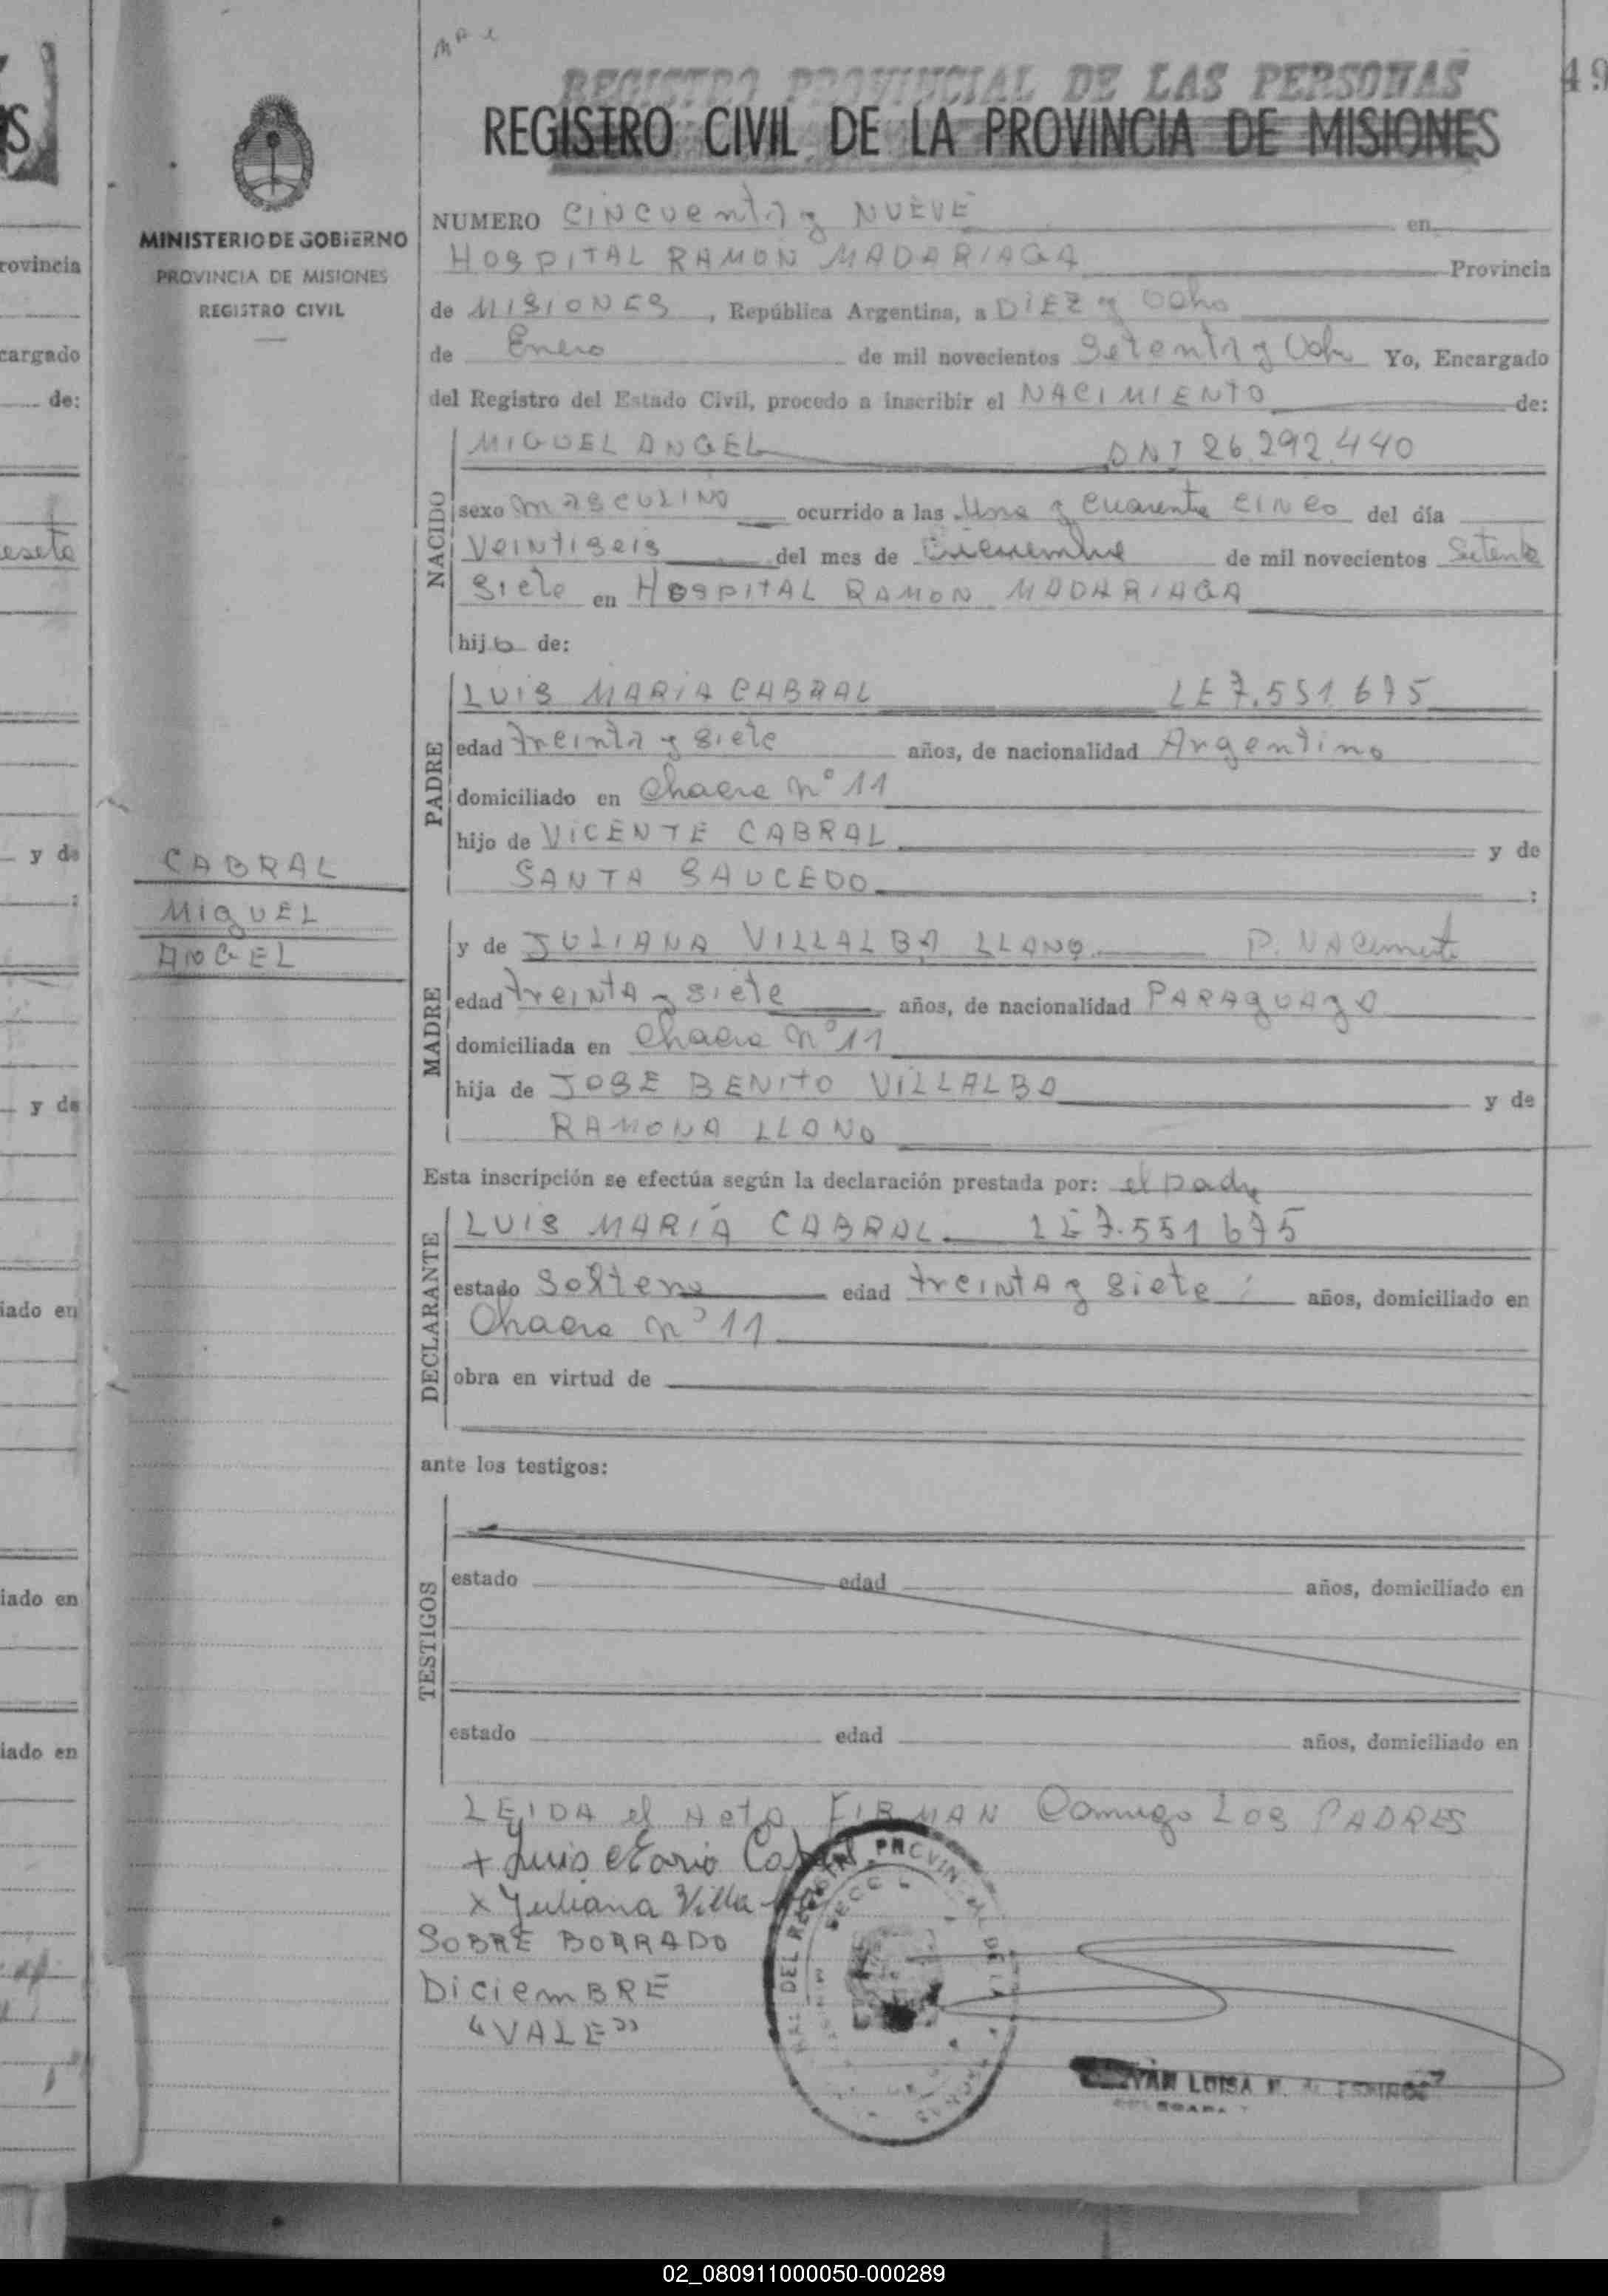 REGISTRO PROVINCIAL DE LAS PERSONAS
49
REGISTRO CIVIL DE LA PROVINCIA DE MISIONES
MINISTERIO DE GOBIERNO
PROVINCIA DE MISIONES
REGISTRO CIVIL
NUMERO CINCUENTA y NUEVE en
HOSPITAL RAMON MADARIAGA Provincia
de MISIONES, República Argentina, a DIEZ y Ocho
de Enero de mil novecientos Setenta y Ocho Yo, Encargado
del Registro del Estado Civil, procedo a inscribir el NACIMIENTO de:
NACIDO
MIGUEL ANGEL DNI 26.292.440
sexo masculino ocurrido a las Una y cuarenta cinco del día
Veintiseis del mes de Diciembre de mil novecientos Setenta
Siete en HOSPITAL RAMON MADARIAGA
hijo de:
PADRE
LUIS MARIA CABRAL LE 7.551.675
edad treinta y siete años, de nacionalidad Argentino
domiciliado en Chacra nº 11
hijo de VICENTE CABRAL y de
SANTA SAUCEDO :
CABRAL
MIGUEL
ANGEL
MADRE
y de JULIANA VILLALBA LLANO P. Nacimiento
edad treinta y siete años, de nacionalidad PARAGUAYA
domiciliada en Chacra nº 11
hija de JOSE BENITO VILLALBA y de
RAMONA LLANO
Esta inscripción se efectúa según la declaración prestada por: el padre
DECLARANTE
LUIS MARÍA CABRAL LE 7.551.675
estado Soltero edad treinta y siete años, domiciliado en
Chacra nº 11
obra en virtud de
ante los testigos:
TESTIGOS
estado edad años, domiciliado en
estado edad años, domiciliado en
LEIDA el Acta FIRMAN Conmigo LOS PADRES
+ Luis Mario Cabral
x Juliana Villa
SOBRE BORRADO
DiciemBRE
"VALE"
DEL REGISTRO PROVINCIAL DE LA
LUISA
rovincia
cargado
de:
y de
y de
iado en
iado en
iado en
02_080911000050-000289